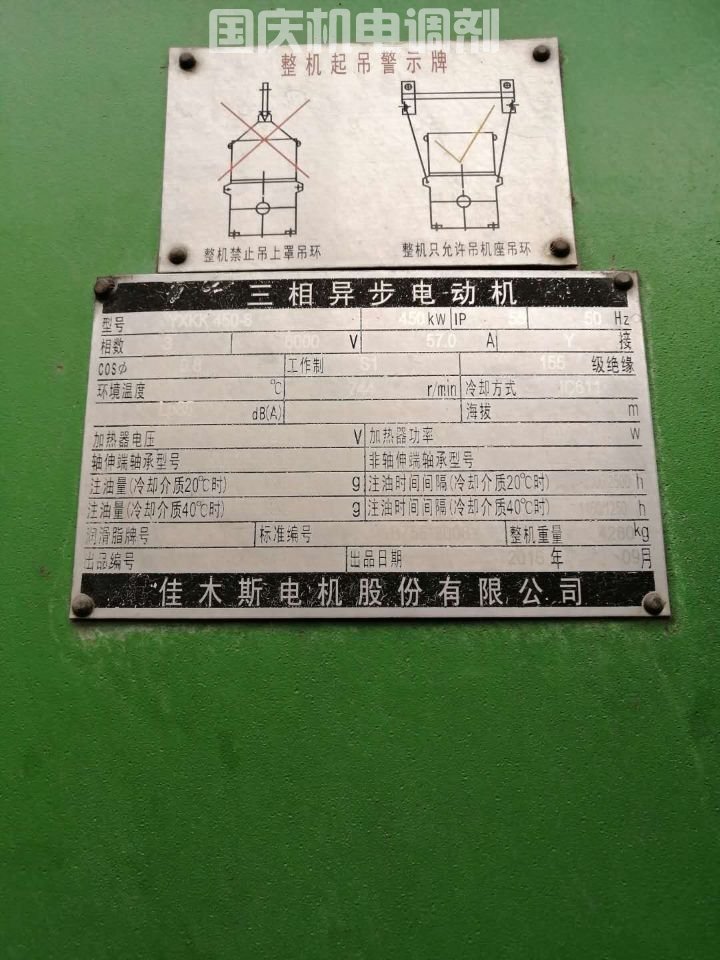 国庆机电调剂
整机起吊警示牌
整机禁止吊上罩吊环 整机只允许吊机座吊环
三相异步电动机
型号 YXKK 450-8 450 kW IP 50 Hz
相数 3 6000 V 57.0 A Y 接
cosφ 工作制 S1 155 级绝缘
环境温度 ℃ 744 r/min 冷却方式 IC611
dB(A) 海拔 m
加热器电压 V 加热器功率 W
轴伸端轴承型号 非轴伸端轴承型号
注油量(冷却介质20℃时) g 注油时间间隔(冷却介质20℃时) h
注油量(冷却介质40℃时) g 注油时间间隔(冷却介质40℃时) h
润滑脂牌号 标准编号 整机重量 4260 kg
出品编号 出品日期 年 09 月
佳木斯电机股份有限公司